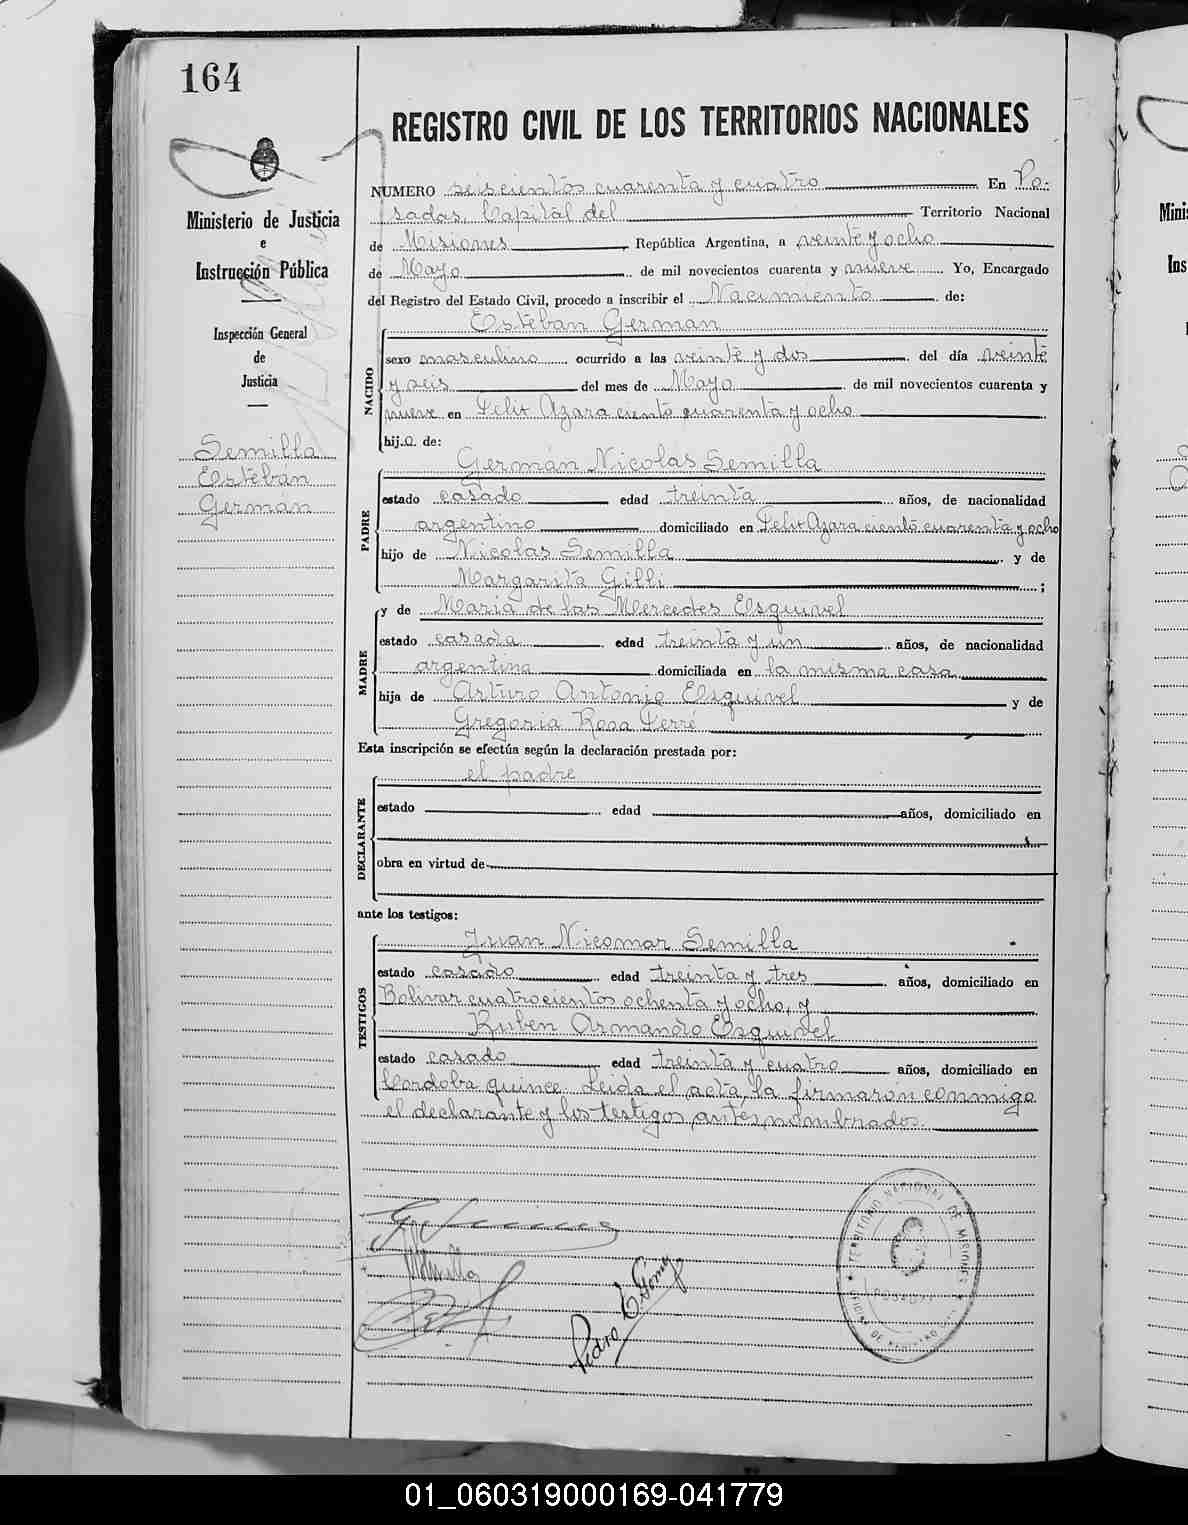 164
REGISTRO CIVIL DE LOS TERRITORIOS NACIONALES
Ministerio de Justicia
e
Instrucción Pública
Inspección General
de
Justicia
Semilla
Esteban
Germán
NUMERO seiscientos cuarenta y cuatro En Po-
sadas, Capital del Territorio Nacional
de Misiones, República Argentina, a veinte y ocho
de Mayo de mil novecientos cuarenta y nueve Yo, Encargado
del Registro del Estado Civil, procedo a inscribir el Nacimiento de:
Esteban German
NACIDO
sexo masculino ocurrido a las veinte y dos del día veinte
y seis del mes de Mayo de mil novecientos cuarenta y
nueve en Felix Azara ciento cuarenta y ocho
hijo de:
Germán Nicolas Semilla
PADRE
estado casado edad treinta años, de nacionalidad
argentino domiciliado en Felix Azara ciento cuarenta y ocho
hijo de Nicolas Semilla y de
Margarita Gilli;
y de Maria de las Mercedes Esquivel
MADRE
estado casada edad treinta y un años, de nacionalidad
argentina domiciliada en la misma casa
hija de Arturo Antonio Esquivel y de
Gregoria Rosa Ferré
Esta inscripción se efectúa según la declaración prestada por:
el padre
DECLARANTE
estado edad años, domiciliado en
obra en virtud de
ante los testigos:
Juan Nicomar Semilla
TESTIGOS
estado casado edad treinta y tres años, domiciliado en
Bolivar cuatrocientos ochenta y ocho, y
Ruben Armando Esquivel
estado casado edad treinta y cuatro años, domiciliado en
Cordoba quince. Leida el acta, la firmaron conmigo
el declarante y los testigos antes nombrados.
Pedro E. Gomez
TERRITORIO NACIONAL DE MISIONES
POSADAS
01_060319000169-041779